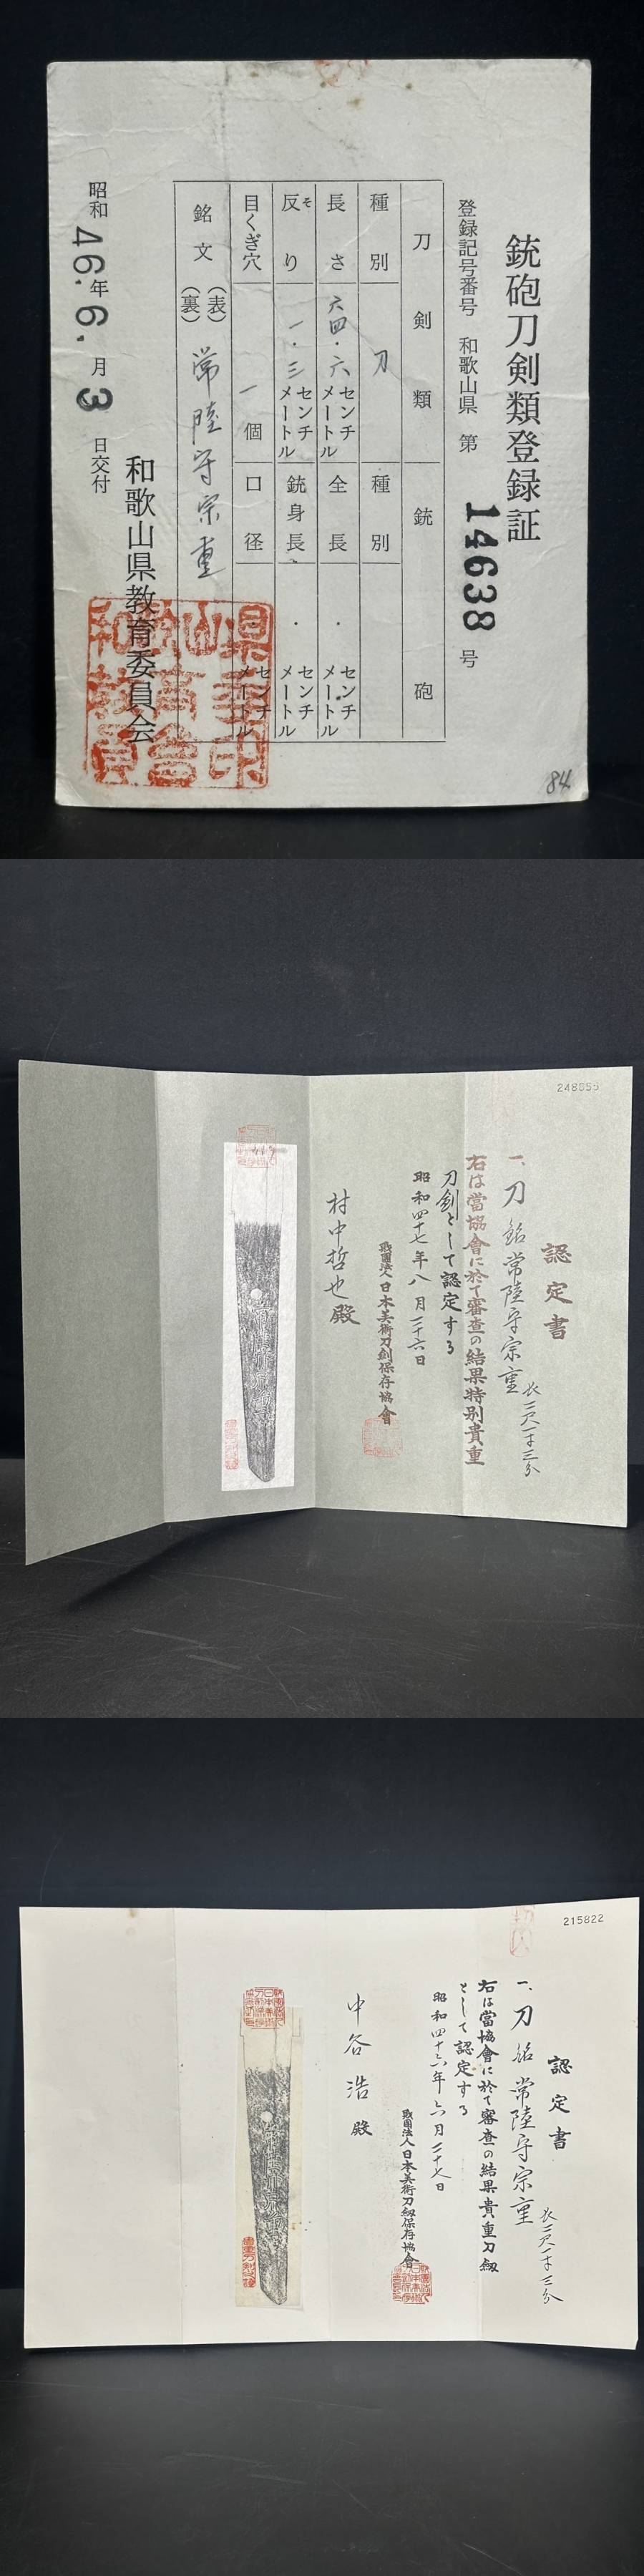 銃砲刀剣類登録証
登録記号番号 和歌山県 第 14638 号
刀剣類 銃砲
種別 刀 種別
長さ 六四・六 センチメートル 全長 ・ センチメートル
反り そ 一・三 センチメートル 銃身長 ・ センチメートル
目くぎ穴 一個 口径 センチメートル
銘文 (表) (裏) 常陸守宗重
和歌山県教育委員会
昭和 46.年 6.月 3 日交付
84
248555
認定書
一、刀 銘 常陸守宗重 長二尺一寸三分
右は當協會に於て審査の結果特別貴重
刀剣として認定する
昭和四十七年八月二十六日
財團法人日本美術刀剣保存協會
村中哲也殿
215822
認定書
一、刀 銘 常陸守宗重 長二尺一寸三分
右は當協會に於て審査の結果貴重刀剱
として認定する
昭和四十六年六月二十七日
財團法人日本美術刀剱保存協會
中谷浩殿